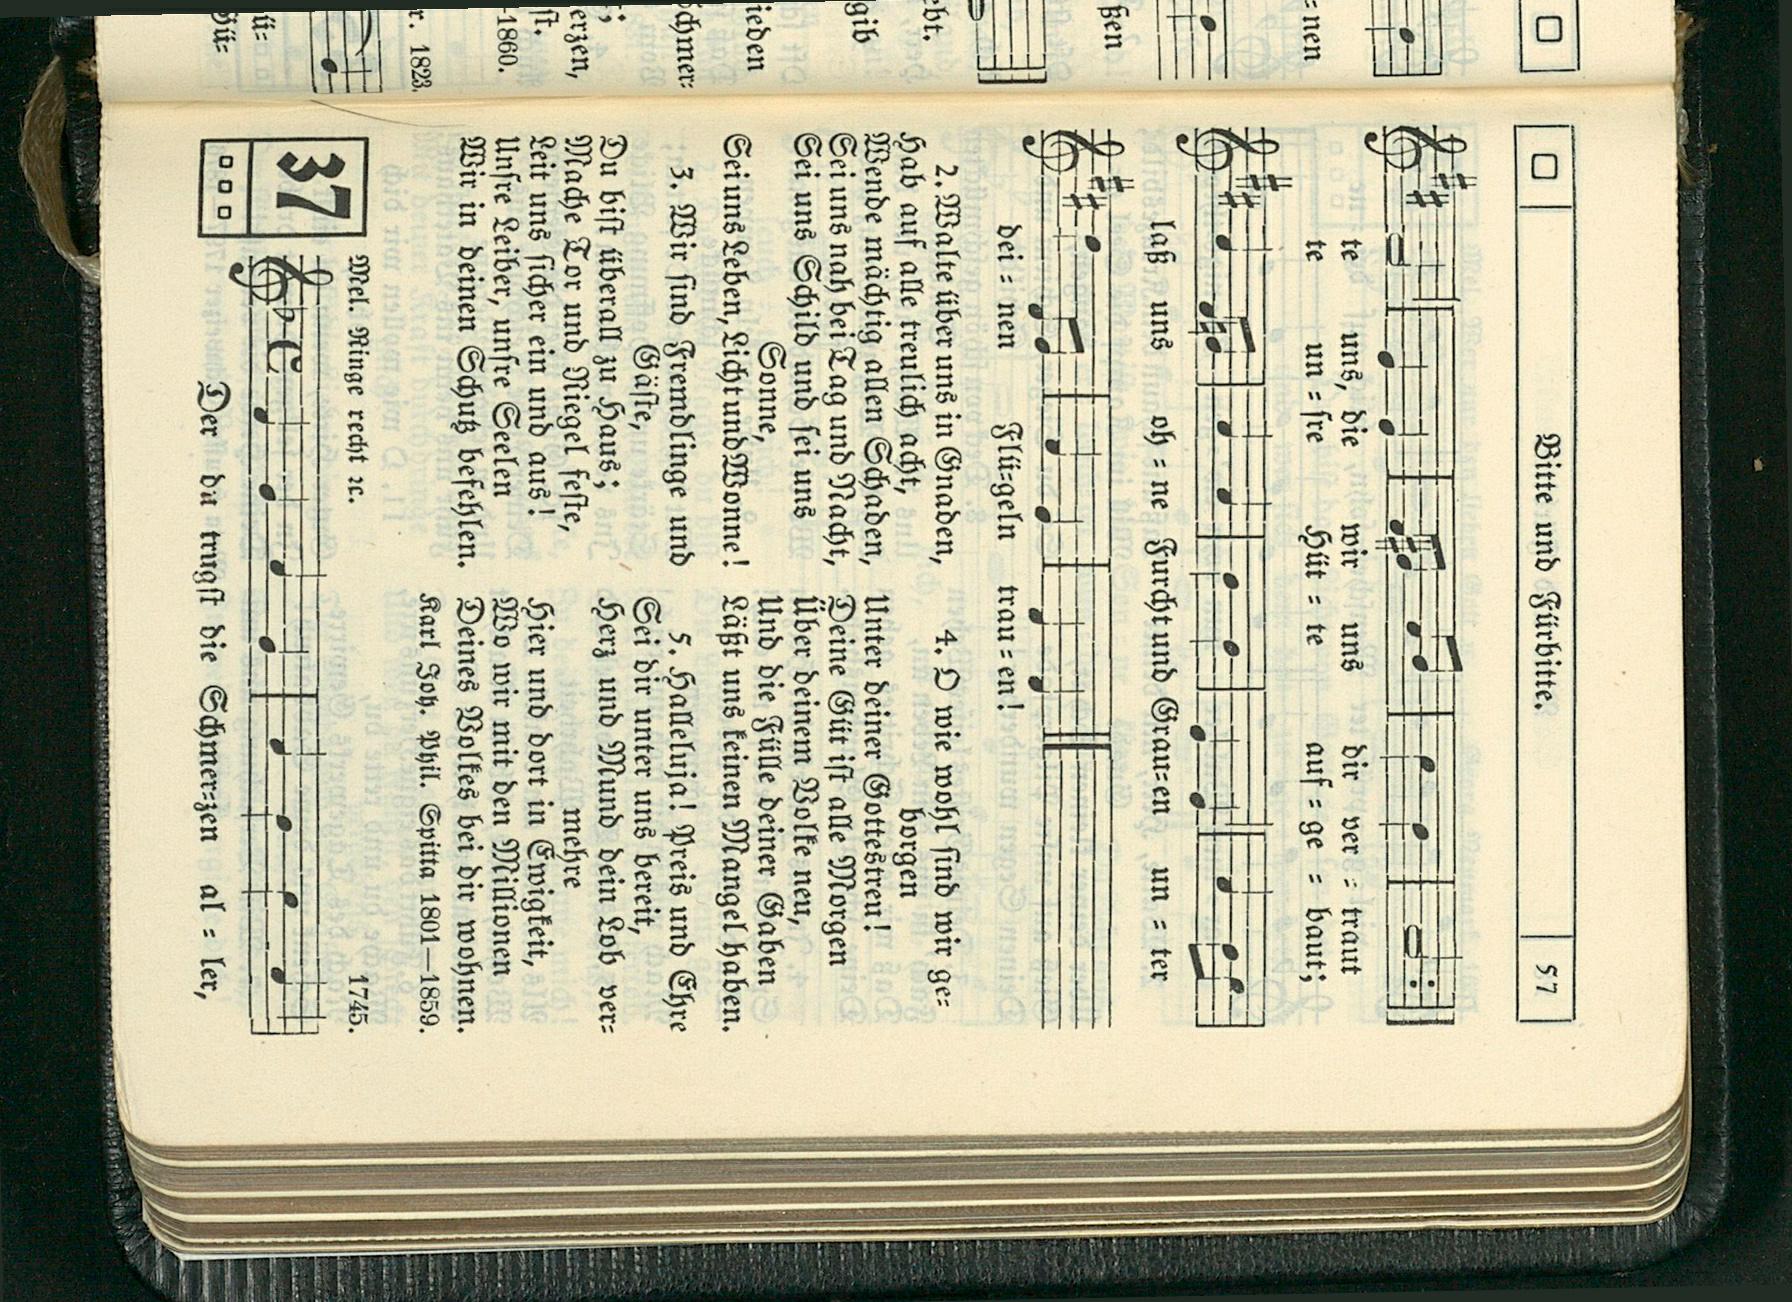 Bitte und Fürbitte.
57
te uns, die wir uns dir ver = traut
te un = sre Hüt = te auf = ge = baut;
laß uns oh = ne Furcht und Grau=en un = ter
dei = nen Flü=geln trau = en!
2. Walte über uns in Gnaden,
Hab auf alle treulich acht,
Wende mächtig allen Schaden,
Sei uns nah bei Tag und Nacht,
Sei uns Schild und sei uns
Sonne,
Sei uns Leben, Licht und Wonne!
3. Wir sind Fremdlinge und
Gäste,
Du bist überall zu Haus;
Mache Tor und Riegel feste,
Leit uns sicher ein und aus!
Unsre Leiber, unsre Seelen
Wir in deinen Schutz befehlen.
4. O wie wohl sind wir ge=
borgen
Unter deiner Gottestreu!
Deine Güt ist alle Morgen
Über deinem Volke neu,
Und die Fülle deiner Gaben
Läßt uns keinen Mangel haben.
5. Halleluja! Preis und Ehre
Sei dir unter uns bereit,
Herz und Mund dein Lob ver=
mehre
Hier und dort in Ewigkeit,
Wo wir mit den Millionen
Deines Volkes bei dir wohnen.
Karl Joh. Phil. Spitta 1801—1859.
37
Mel. Ringe recht ꝛc.
1745.
Der du trugst die Schmer=zen al = ler,
=nen
ßen
ebt.
gib
ieden
Schmer=
erzen,
st.
-1860.
r. 1823.
ü=